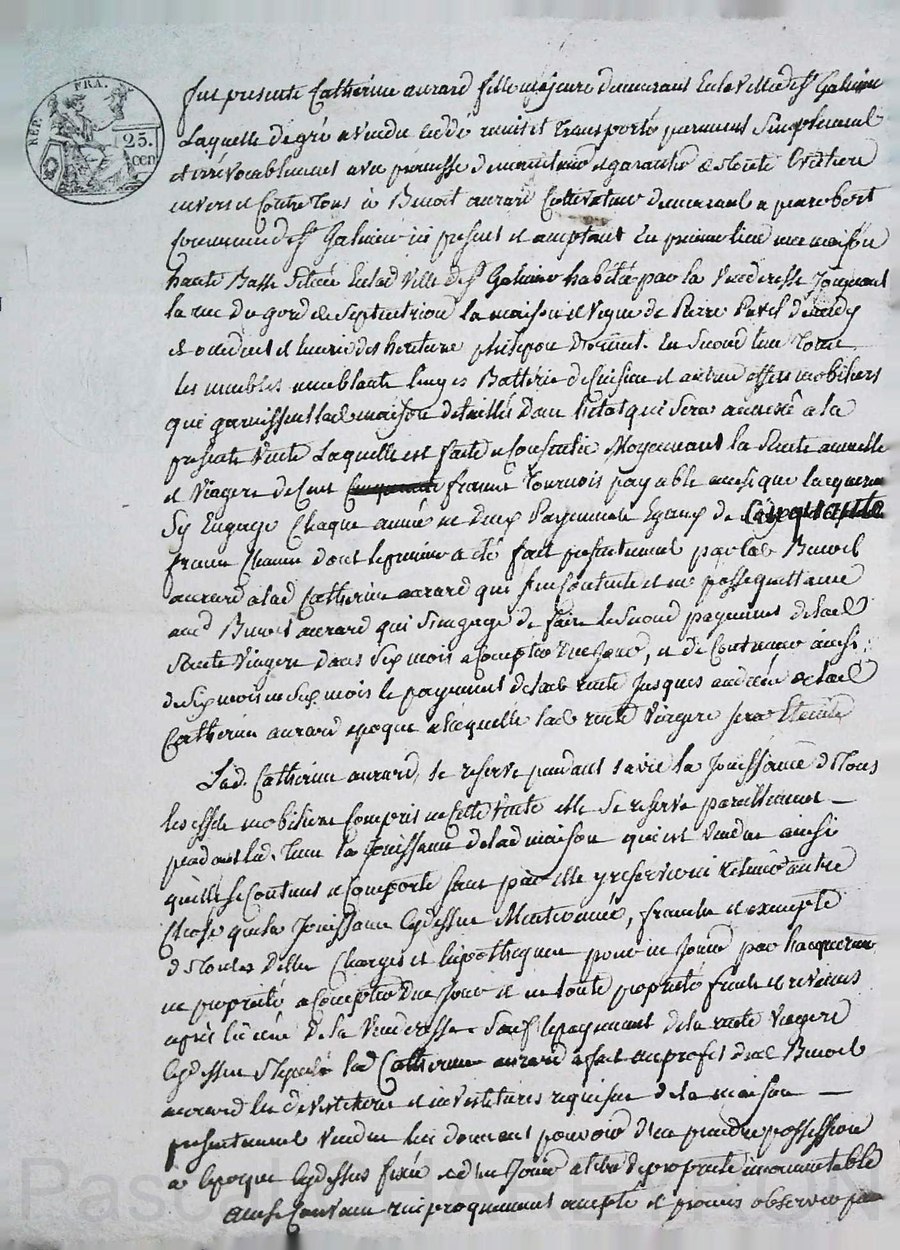 REP. FRA.
25.
cen
fut presente Catherine aurard fille majeure demeurant En la Ville de St Galmier
Laquelle de gré a vendu cedé remis et transporté purement simplement
et irrévocablement avec promesse de maintenir et garantir de toute Eviction
envers et Contre tous à Benoit aurard Cultivateur demeurant a
Commune de St Galmier ici present et acceptant En premier lieu une maison
haute Basse Située En lad Ville de St Galmier habitée par la Venderesse Joignant
la rue du de Septentrion la maison et Vigne de Pierre de midy
et orient et heritiers En Second lieu Tous
les meubles meublants linges Batterie de Cuisine et autres effets mobiliers
qui garnissent lad maison detaillés dans l'état qui Sera annexé a la
presente Vente Laquelle est faite et Consentie Moyennant la Rente annuelle
et Viagere de Cent francs Tournois payable ainsi que l'acquereur
Sy Engage Chaque année en deux Payements Egaux de Cinquante
francs Chacun dont le premier a été fait presentement par led Benoit
aurard a lad Catherine aurard qui content et en passe quittance
aud Benoit aurard qui S'engage de faire le Second payement de lad
Rente Viagere dans Six mois a Compter De ce Jour, et de Continuer ainsi
de Six mois en Six mois le payement de lad rente Jusques au décès de lad
Catherine aurard epoque a laquelle lad rente Viagere sera Eteinte
Lad. Catherine aurard, se reserve pendant sa vie la Jouissance de Tous
les effets mobiliers Compris en Cette Vente elle Se reserve pareillement —
pendant led. Tems la Jouissance de lad maison qui est Vendue ainsi
qu'elle se Contient et Comporte Sans par elle y reserver ni retenir autre
Chose que la Jouissance Cydessus Mentionnée, franche et exempte
de Toutes Dettes Charges et hipotheques pour en Jouir par l'acquereur
en propriété a Compter De ce Jour et en toute propriété fruits et revenus
après le décès de la Venderesse Sauf le payement de la rente Viagere
Cydessus Stipulée lad Catherine aurard a fait au profit dud Benoit
aurard les devestitures et investitures requises de la maison —
presentement Vendue lui donnant pouvoir d'en prendre possession
à l'epoque Cydessus fixée et d'en Jouir a titre de propriété incommutable
ainsi Convenu reciproquement accepté et promis observer
Pascal CHAMBION